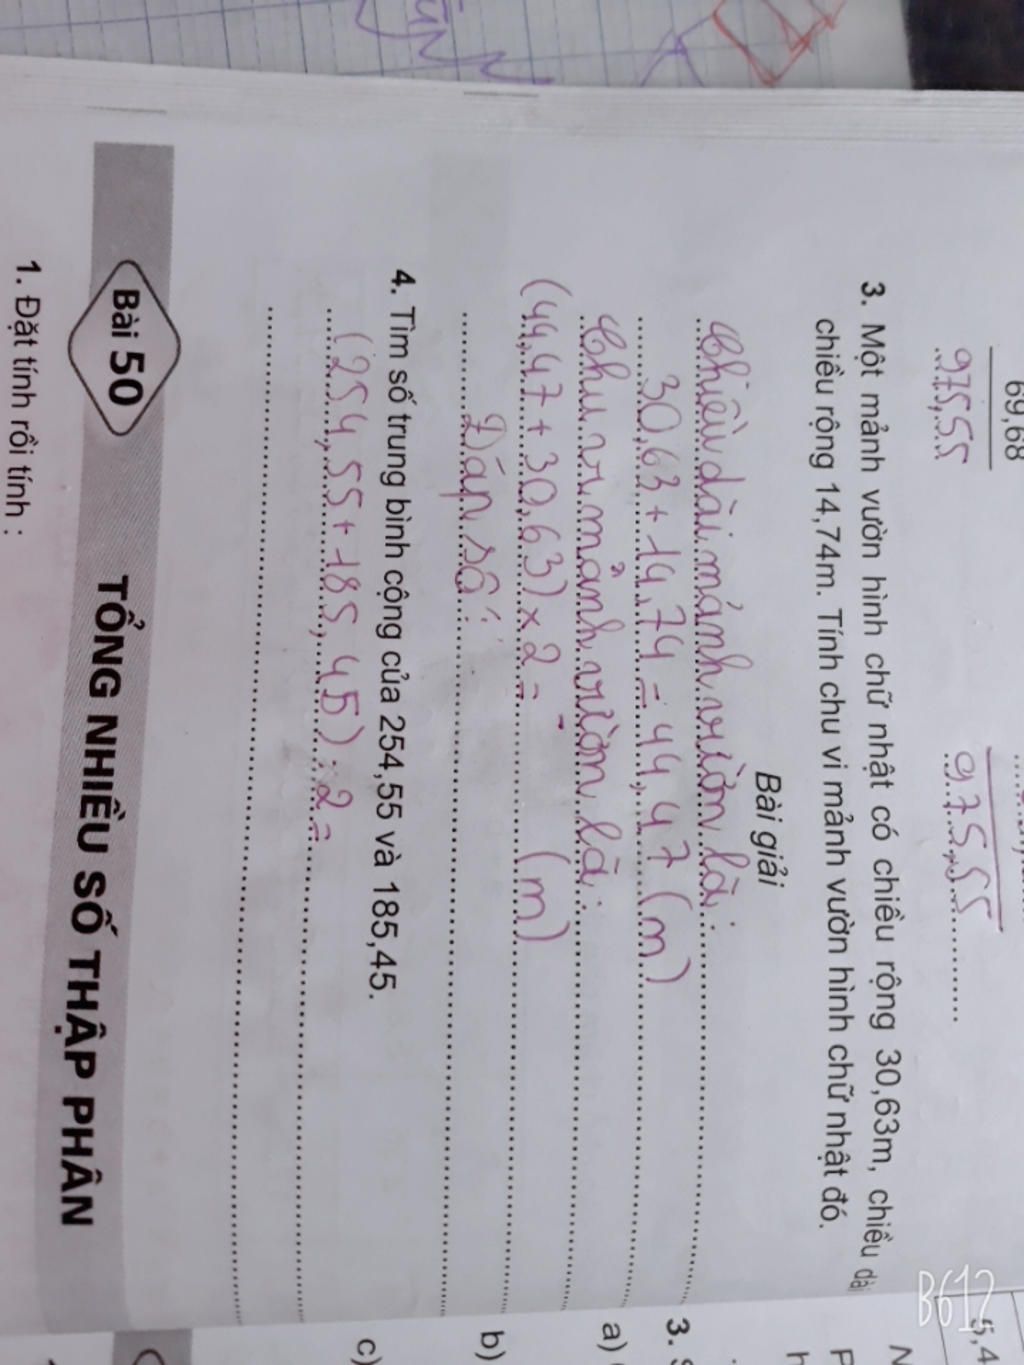 69,68
975,55
975,55
3. Một mảnh vườn hình chữ nhật có chiều rộng 30,63m, chiều dài
chiều rộng 14,74m. Tính chu vi mảnh vườn hình chữ nhật đó.
Bài giải
Chiều dài mảnh vườn là:
30,63 + 14,74 = 44,47 (m)
Chu vi mảnh vườn là:
(44,47 + 30,63) x 2 = (m)
Đáp số:
4. Tìm số trung bình cộng của 254,55 và 185,45.
(254,55 + 185,45) : 2 =
Bài 50
TỔNG NHIỀU SỐ THẬP PHÂN
1. Đặt tính rồi tính :
5,4
3.
a)
b)
c)
B612